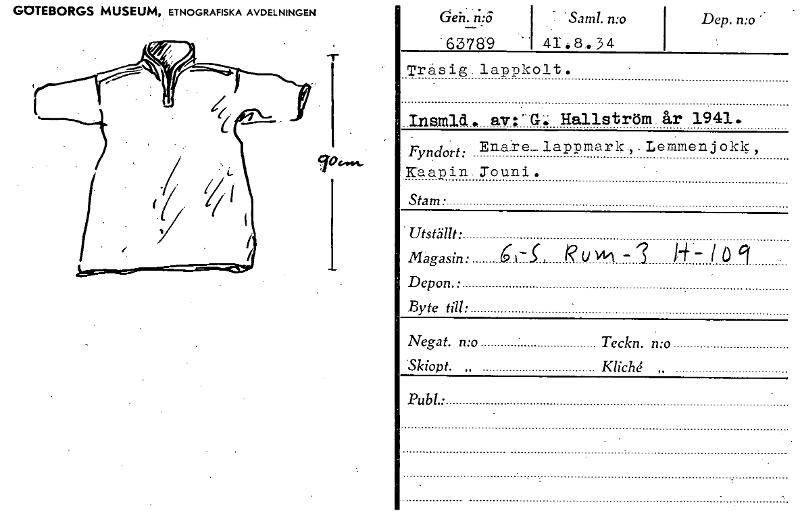 GÖTEBORGS MUSEUM, ETNOGRAFISKA AVDELNINGEN
90cm
Gen. n:o Saml. n:o Dep. n:o
63789 41.8.34
Trasig lappkolt.
Insmld. av: G. Hallström år 1941.
Fyndort: Enare lappmark, Lemmenjokk,
Kaapin Jouni.
Stam:
Utställt:
Magasin: 6-S Rum-3 H-109
Depon.:
Byte till:
Negat. n:o Teckn. n:o
Skiopt. „ Kliché „
Publ.: